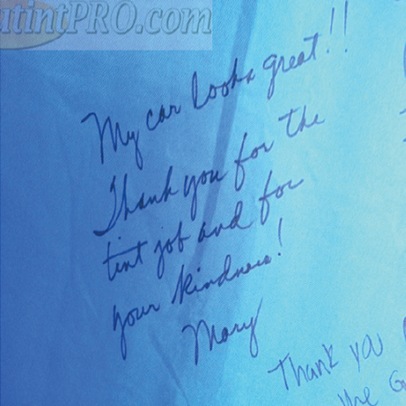 utintPRO.com
My car looks great!!
Thank you for the
tint job and for
your kindness!
Mary
Thank you
the G